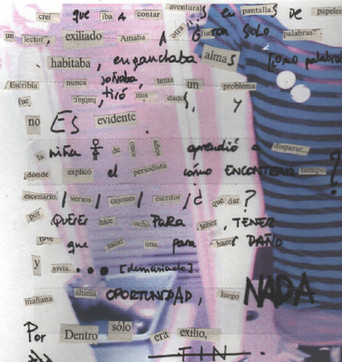 creí que iba a contar aventuras en pantallas DE papeles
un lector, exiliado Amaba A otra G fueran solo palabras?
habitaba, ensanchaba almas [como palabras
Escribía nunca soñaba, tenía un problema
fue tiró mis dados, y
no ES evidente.
la niña de once años aprendió a disparar...
¿donde explicó el periodista cómo ENCONTRAR tiempo?
escenario, / versos / cajones / escritor / d qué dar?
por QUERER hace ocho PARA tener, TENER
que sacar una para hacer DAÑO
y vivía... [demasiado].
mañana última OPORTUNIDAD, luego NADA
Por Dentro sólo era exilio,
FIN